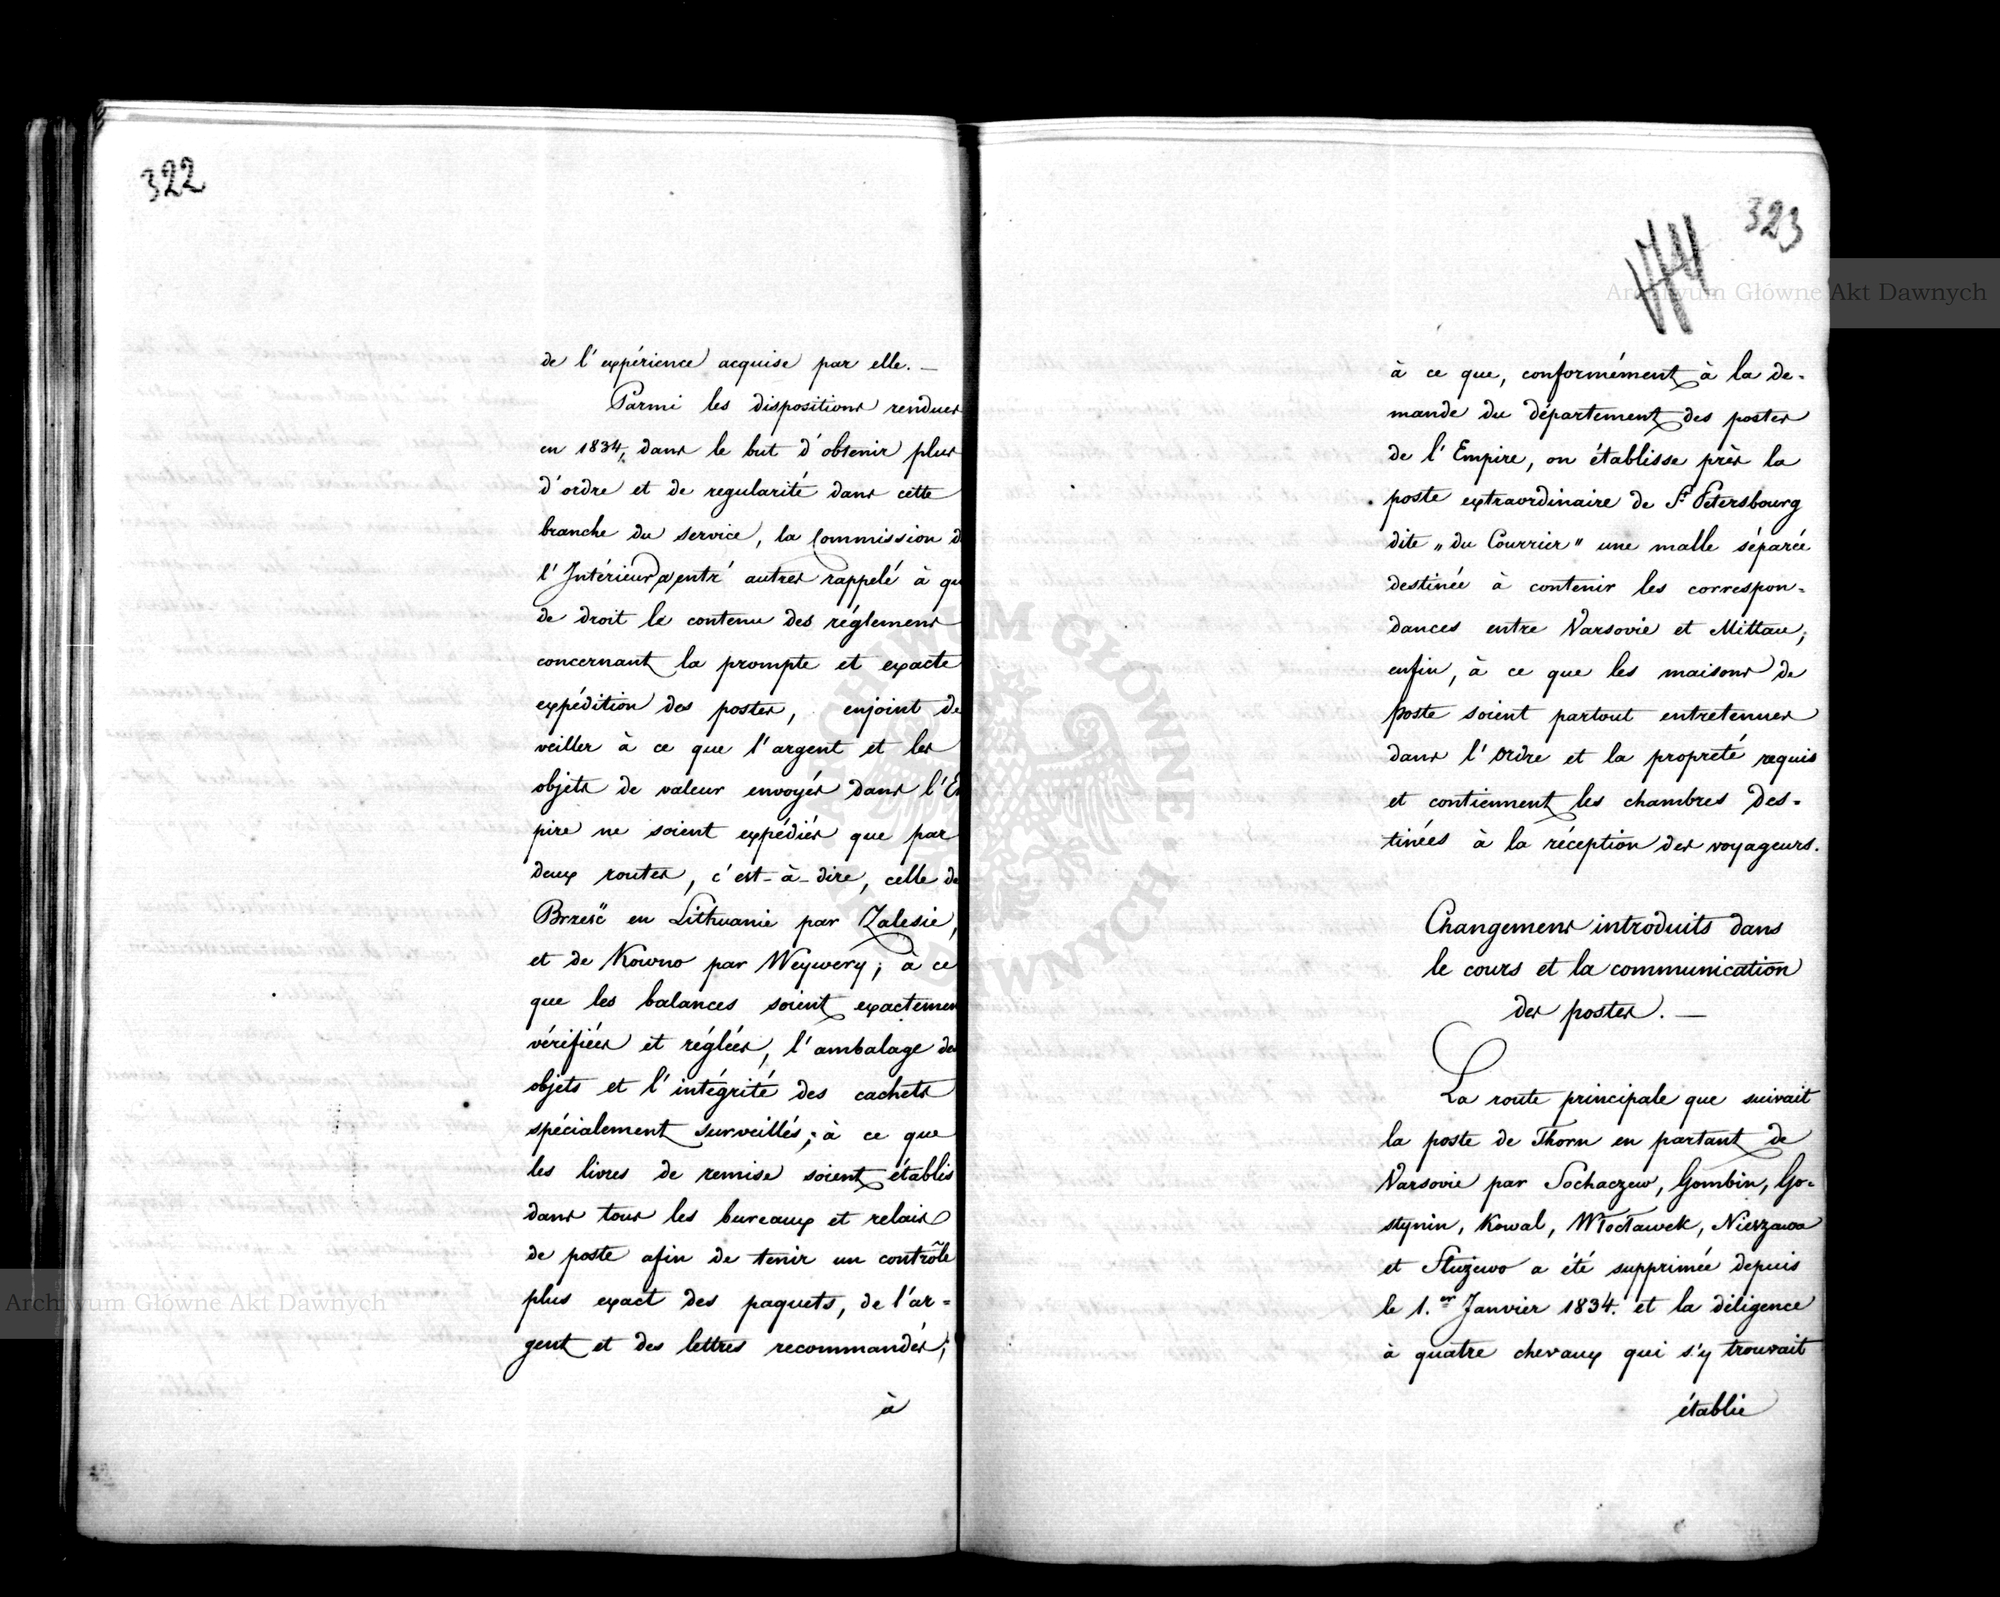 322
de l'expérience acquise par elle. —
Parmi les dispositions rendues
en 1834, dans le but d'obtenir plus
d'ordre et de regularité dans cette
branche du service, la Commission d
l'Intérieur a entr'autres rappelé à qu
de droit le contenu des réglemens
concernant la prompte et exacte
expédition des postes, enjoint de
veiller à ce que l'argent et les
objets de valeur envoyés dans l'E
pire ne soient expédiés que par
deux routes, c'est-à-dire, celle de
Brześć en Lithuanie par Zalesie,
et de Kowno par Weywery; à ce
que les balances soient exactemen
vérifiées et réglées, l'ambalage des
objets et l'intégrité des cachets
spécialement surveillés; à ce que
les livres de remise soient établis
dans tous les bureaux et relais
de poste afin de tenir un contrôle
plus exact des paquets, de l'ar=
gent et des lettres recommandés;
à
323
à ce que, conformément à la de=
mande du département des postes
de l'Empire, on établisse près la
poste extraordinaire de St Petersbourg
dite „du Courrier" une malle séparée
destinée à contenir les correspon=
dances entre Varsovie et Mittau;
enfin, à ce que les maisons de
poste soient partout entretenues
dans l'ordre et la propreté requis
et contiennent les chambres des=
tinées à la réception des voyageurs.
Changemens introduits dans
le cours et la communication
des postes. —
La route principale que suivait
la poste de Thorn en partant de
Varsovie par Sochaczew, Gombin, Go=
stynin, Kowal, Włocławek, Nieszawa
et Służewo a été supprimée depuis
le 1.er Janvier 1834. et la diligence
à quatre chevaux qui s'y trouvait
établie
Archiwum Główne Akt Dawnych
Archiwum Główne Akt Dawnych
ARCHIWUM GŁÓWNE AKT DAWNYCH